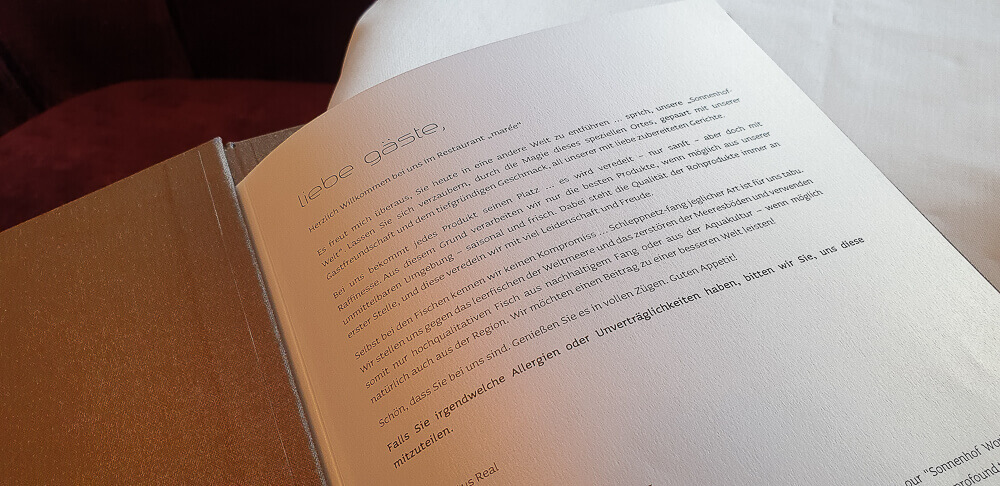 liebe gäste,
Herzlich Willkommen bei uns im Restaurant „marée“
Es freut mich überaus, Sie heute in eine andere Welt zu entführen ... sprich, unsere „Sonnenhof-
Welt“. Lassen Sie sich verzaubern, durch die Magie dieses speziellen Ortes, gepaart mit unserer
Gastfreundschaft und dem tiefgründigen Geschmack, all unserer mit liebe zubereiteten Gerichte.
Bei uns bekommt jedes Produkt seinen Platz ... es wird veredelt – nur sanft – aber doch mit
Raffinesse. Aus diesem Grund verarbeiten wir nur die besten Produkte, wenn möglich aus unserer
unmittelbaren Umgebung – saisonal und frisch. Dabei steht die Qualität der Rohprodukte immer an
erster Stelle, und diese veredeln wir mit viel Leidenschaft und Freude.
Selbst bei den Fischen kennen wir keinen Kompromiss ... Schleppnetz-fang jeglicher Art ist für uns tabu.
Wir stellen uns gegen das leerfischen der Weltmeere und das zerstören der Meeresböden und verwenden
somit nur hochqualitativen Fisch aus nachhaltigem Fang oder aus der Aquakultur – wenn möglich
natürlich auch aus der Region. Wir möchten einen Beitrag zu einer besseren Welt leisten!
Schön, dass Sie bei uns sind. Genießen Sie es in vollen Zügen. Guten Appetit!
Falls Sie irgendwelche Allergien oder Unverträglichkeiten haben, bitten wir Sie, uns diese
mitzuteilen.
us Real
our "Sonnenhof Wor
profound